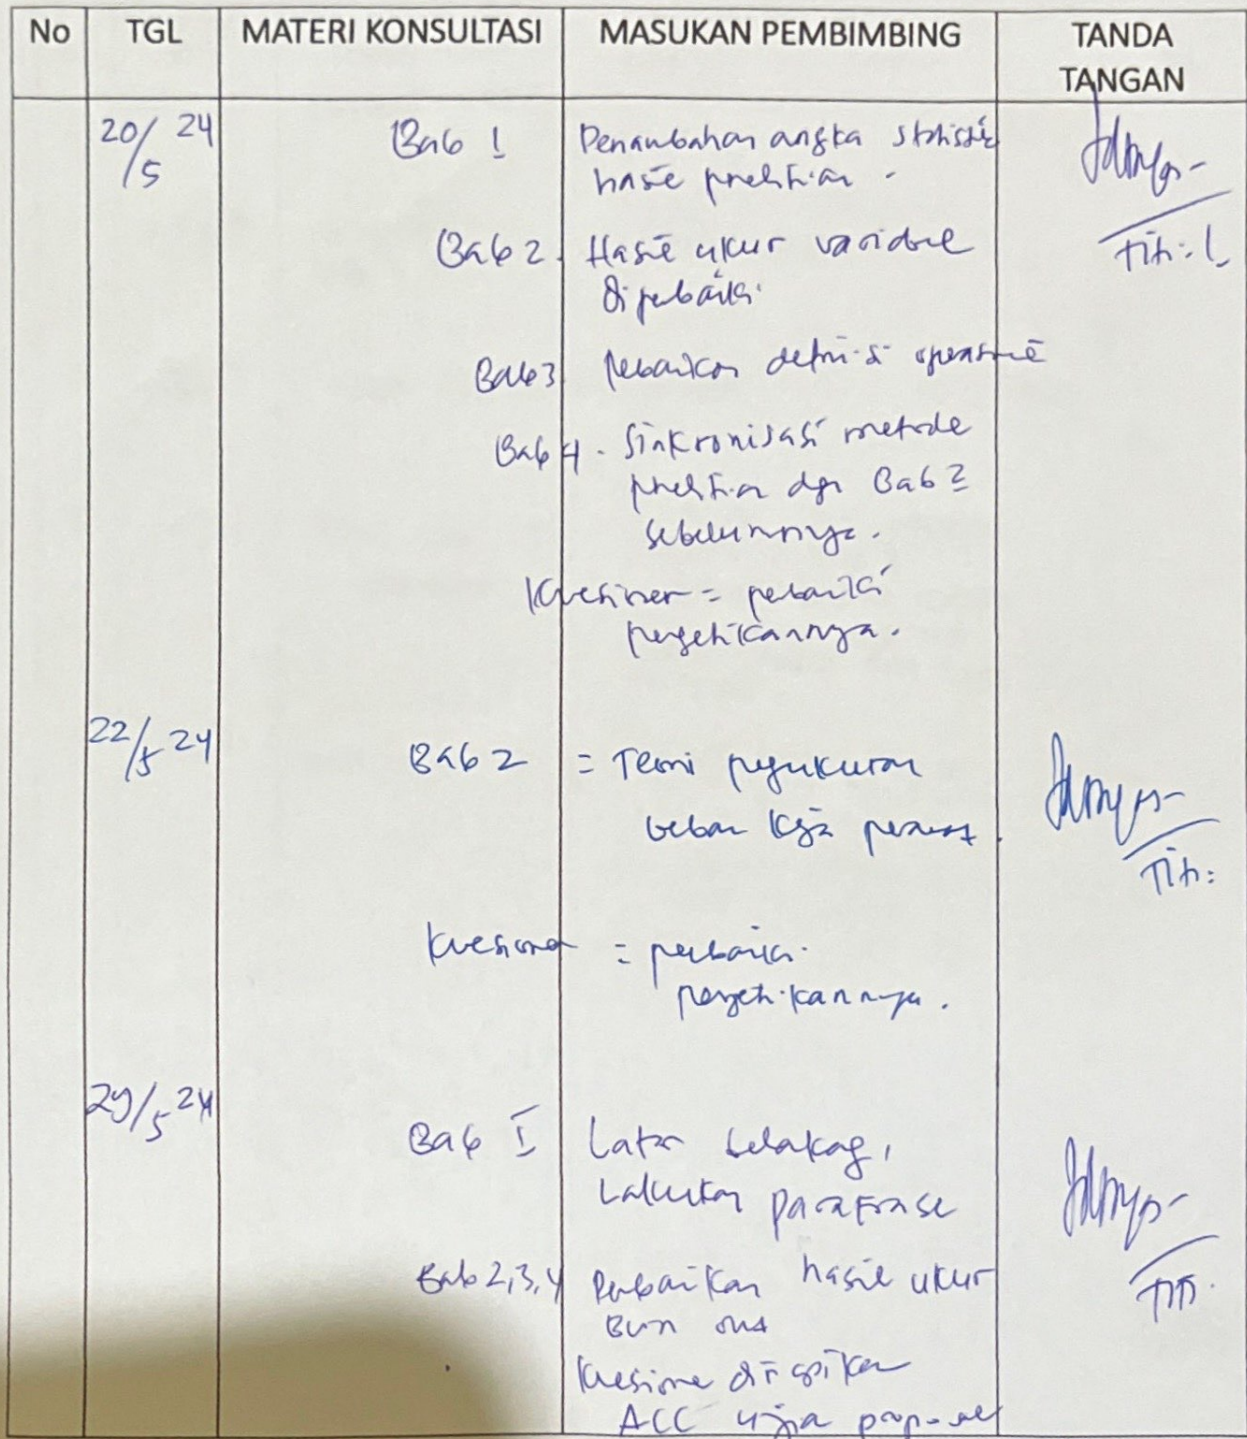 No TGL MATERI KONSULTASI MASUKAN PEMBIMBING TANDA
TANGAN
20/5 24 Bab 1 Penambahan angka statistik
hasil penelitian.
Bab 2. Hasil ukur variabel
diperbaiki.
Titi:
Bab 3 Perbaikan definisi operasional
Bab 4. Sinkronisasi metode
penelitian dgn Bab 2
sebelumnya.
Kuesioner = perbaiki
pengetikannya.
22/5 24 Bab 2 = Teori pengukuran
beban kerja perawat.
Titi:
Kuesioner = perbaiki
pengetikannya.
29/5 24
Bab I Latar belakang,
Lakukan parafrase
Bab 2,3,4 Perbaikan hasil ukur
Titi.
Kuesioner dirapikan
ACC ujian proposal